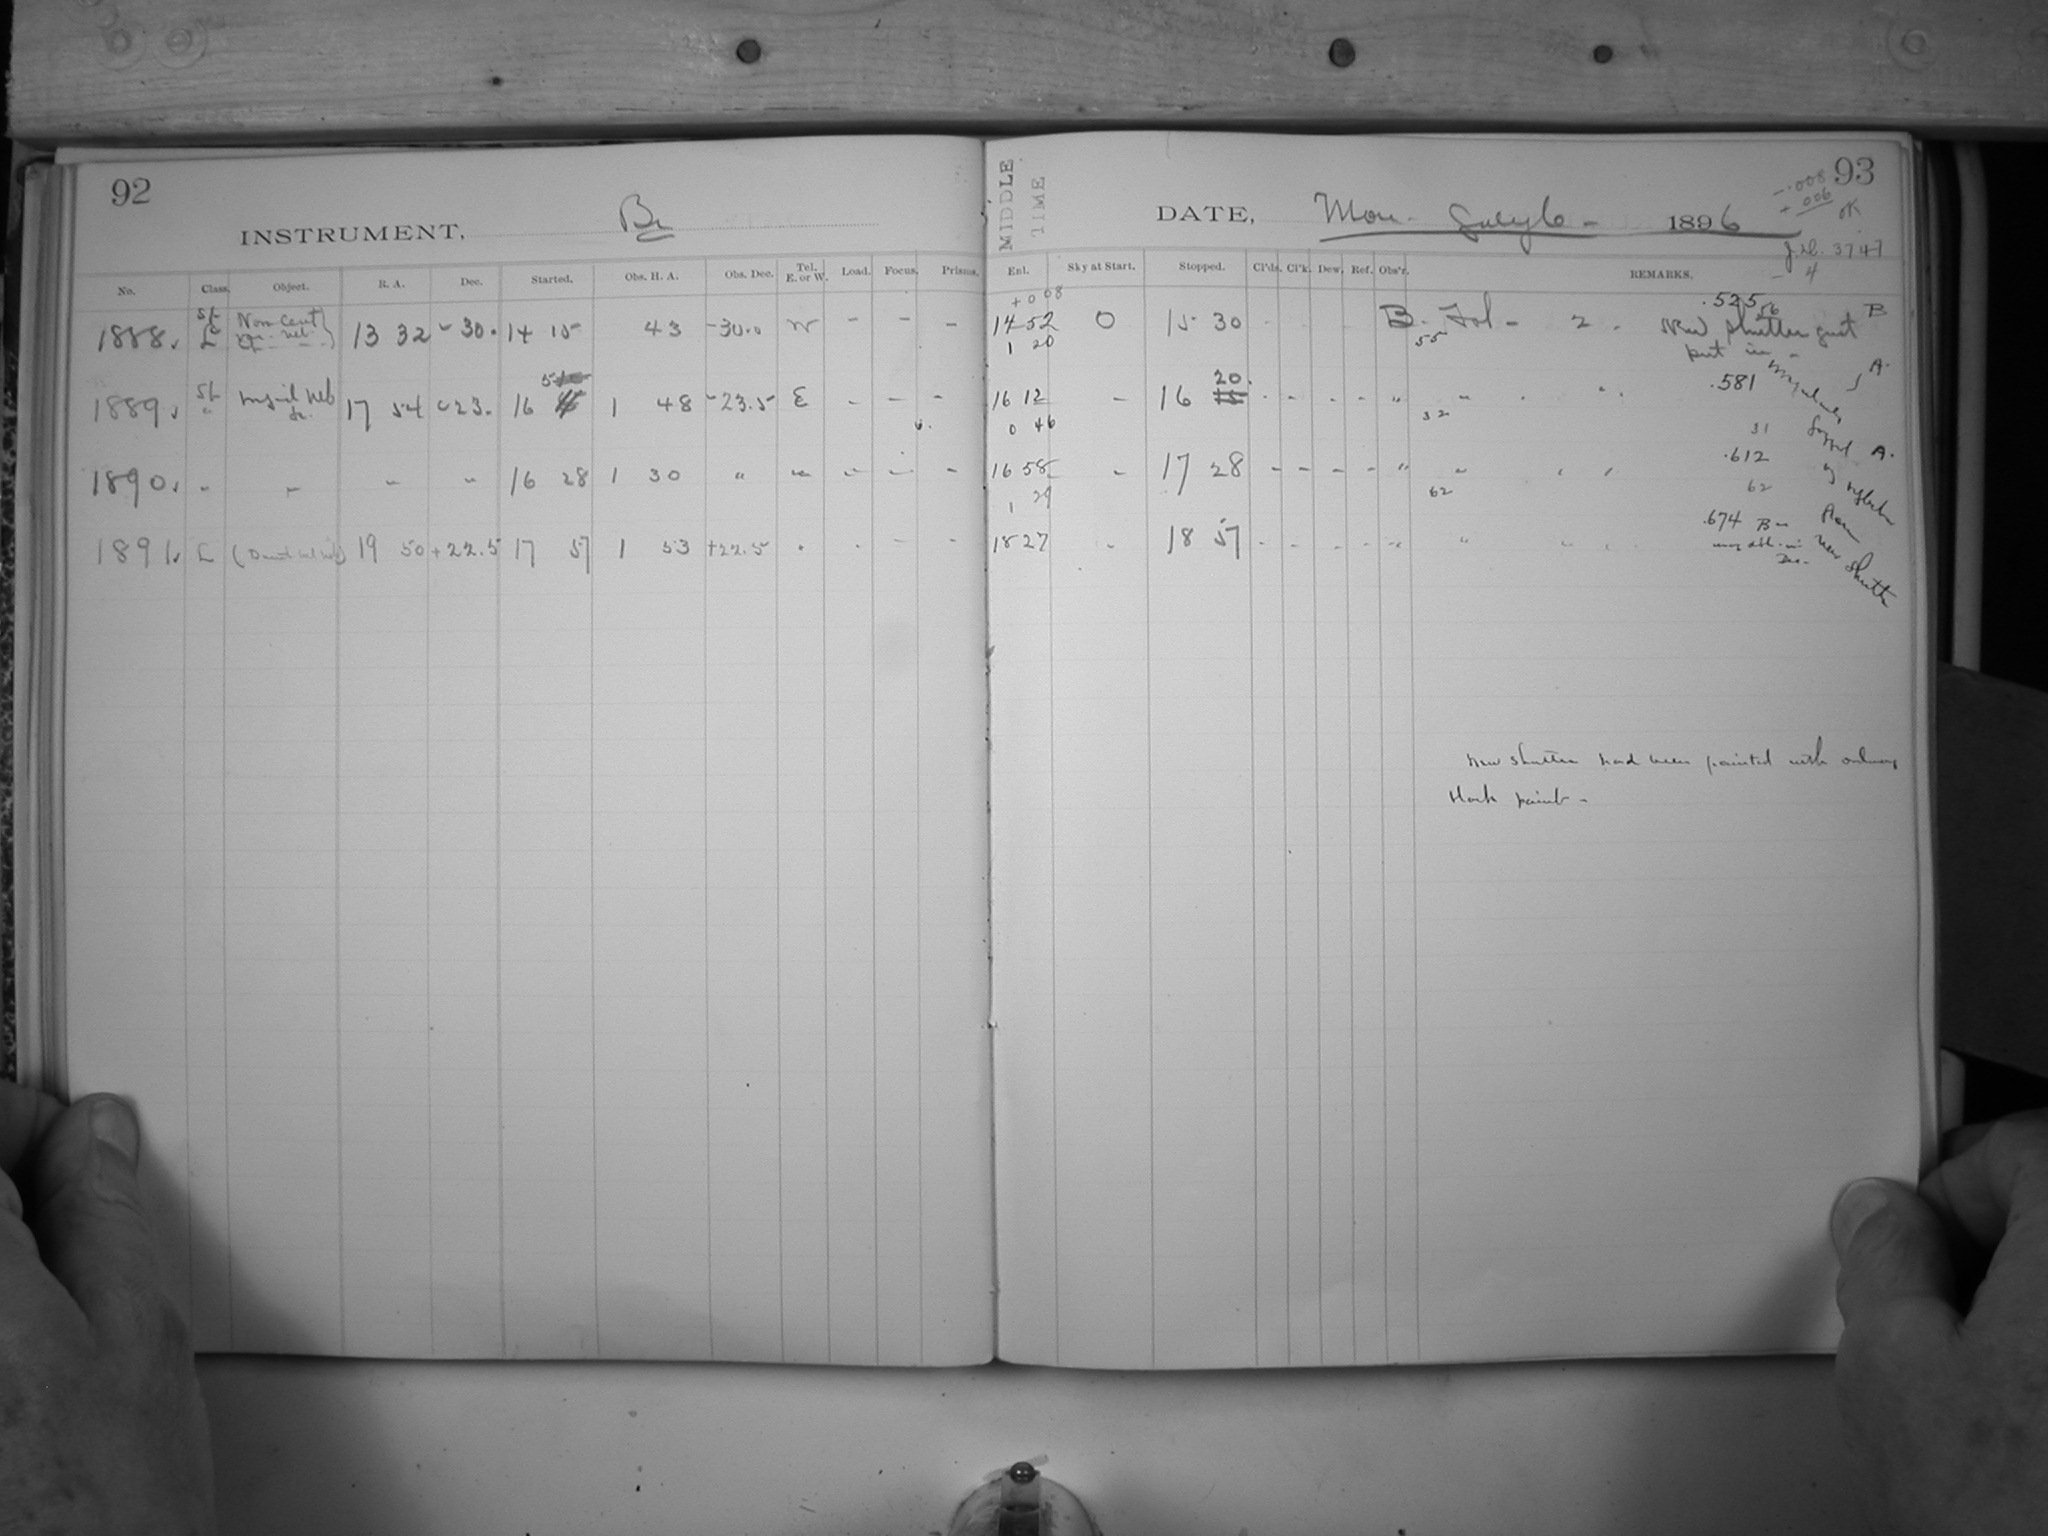 92
INSTRUMENT,
No. Class. Object. R. A. Dec. Started. Obs. H. A. Obs. Dec. Tel. E. or W. Load. Focus. Prisms.
1888. 13 32 - 30. 14 15 43 -30.0 W - - -
1889. 17 54 -23. 16 1 48 -23.5 E - - -
1890. " " " " 16 28 1 30 " " - - -
1891. L 19 50 +22.5 17 57 1 53 +22.5
MIDDLE TIME
93
-.008
+.006
OK
DATE, Mon. July 6 - 1896
J.D. 3747
- 4
Enl. Sky at Start. Stopped. Cl'ds. Cl'k. Dew. Ref. Obs'r. REMARKS.
+008
14 52 0 15 30 B. Fol - 2. .525 New shutter just B
1 20 55 56 put in -
16 12 - 16 20 " " .581 A.
0 46 32 31
16 58 - 17 28 - - - - " " .612 A.
1 29 62 62
18 27 18 57 - - - - " " .674
from new shutter
New shutter had been painted with ordinary
black paint -